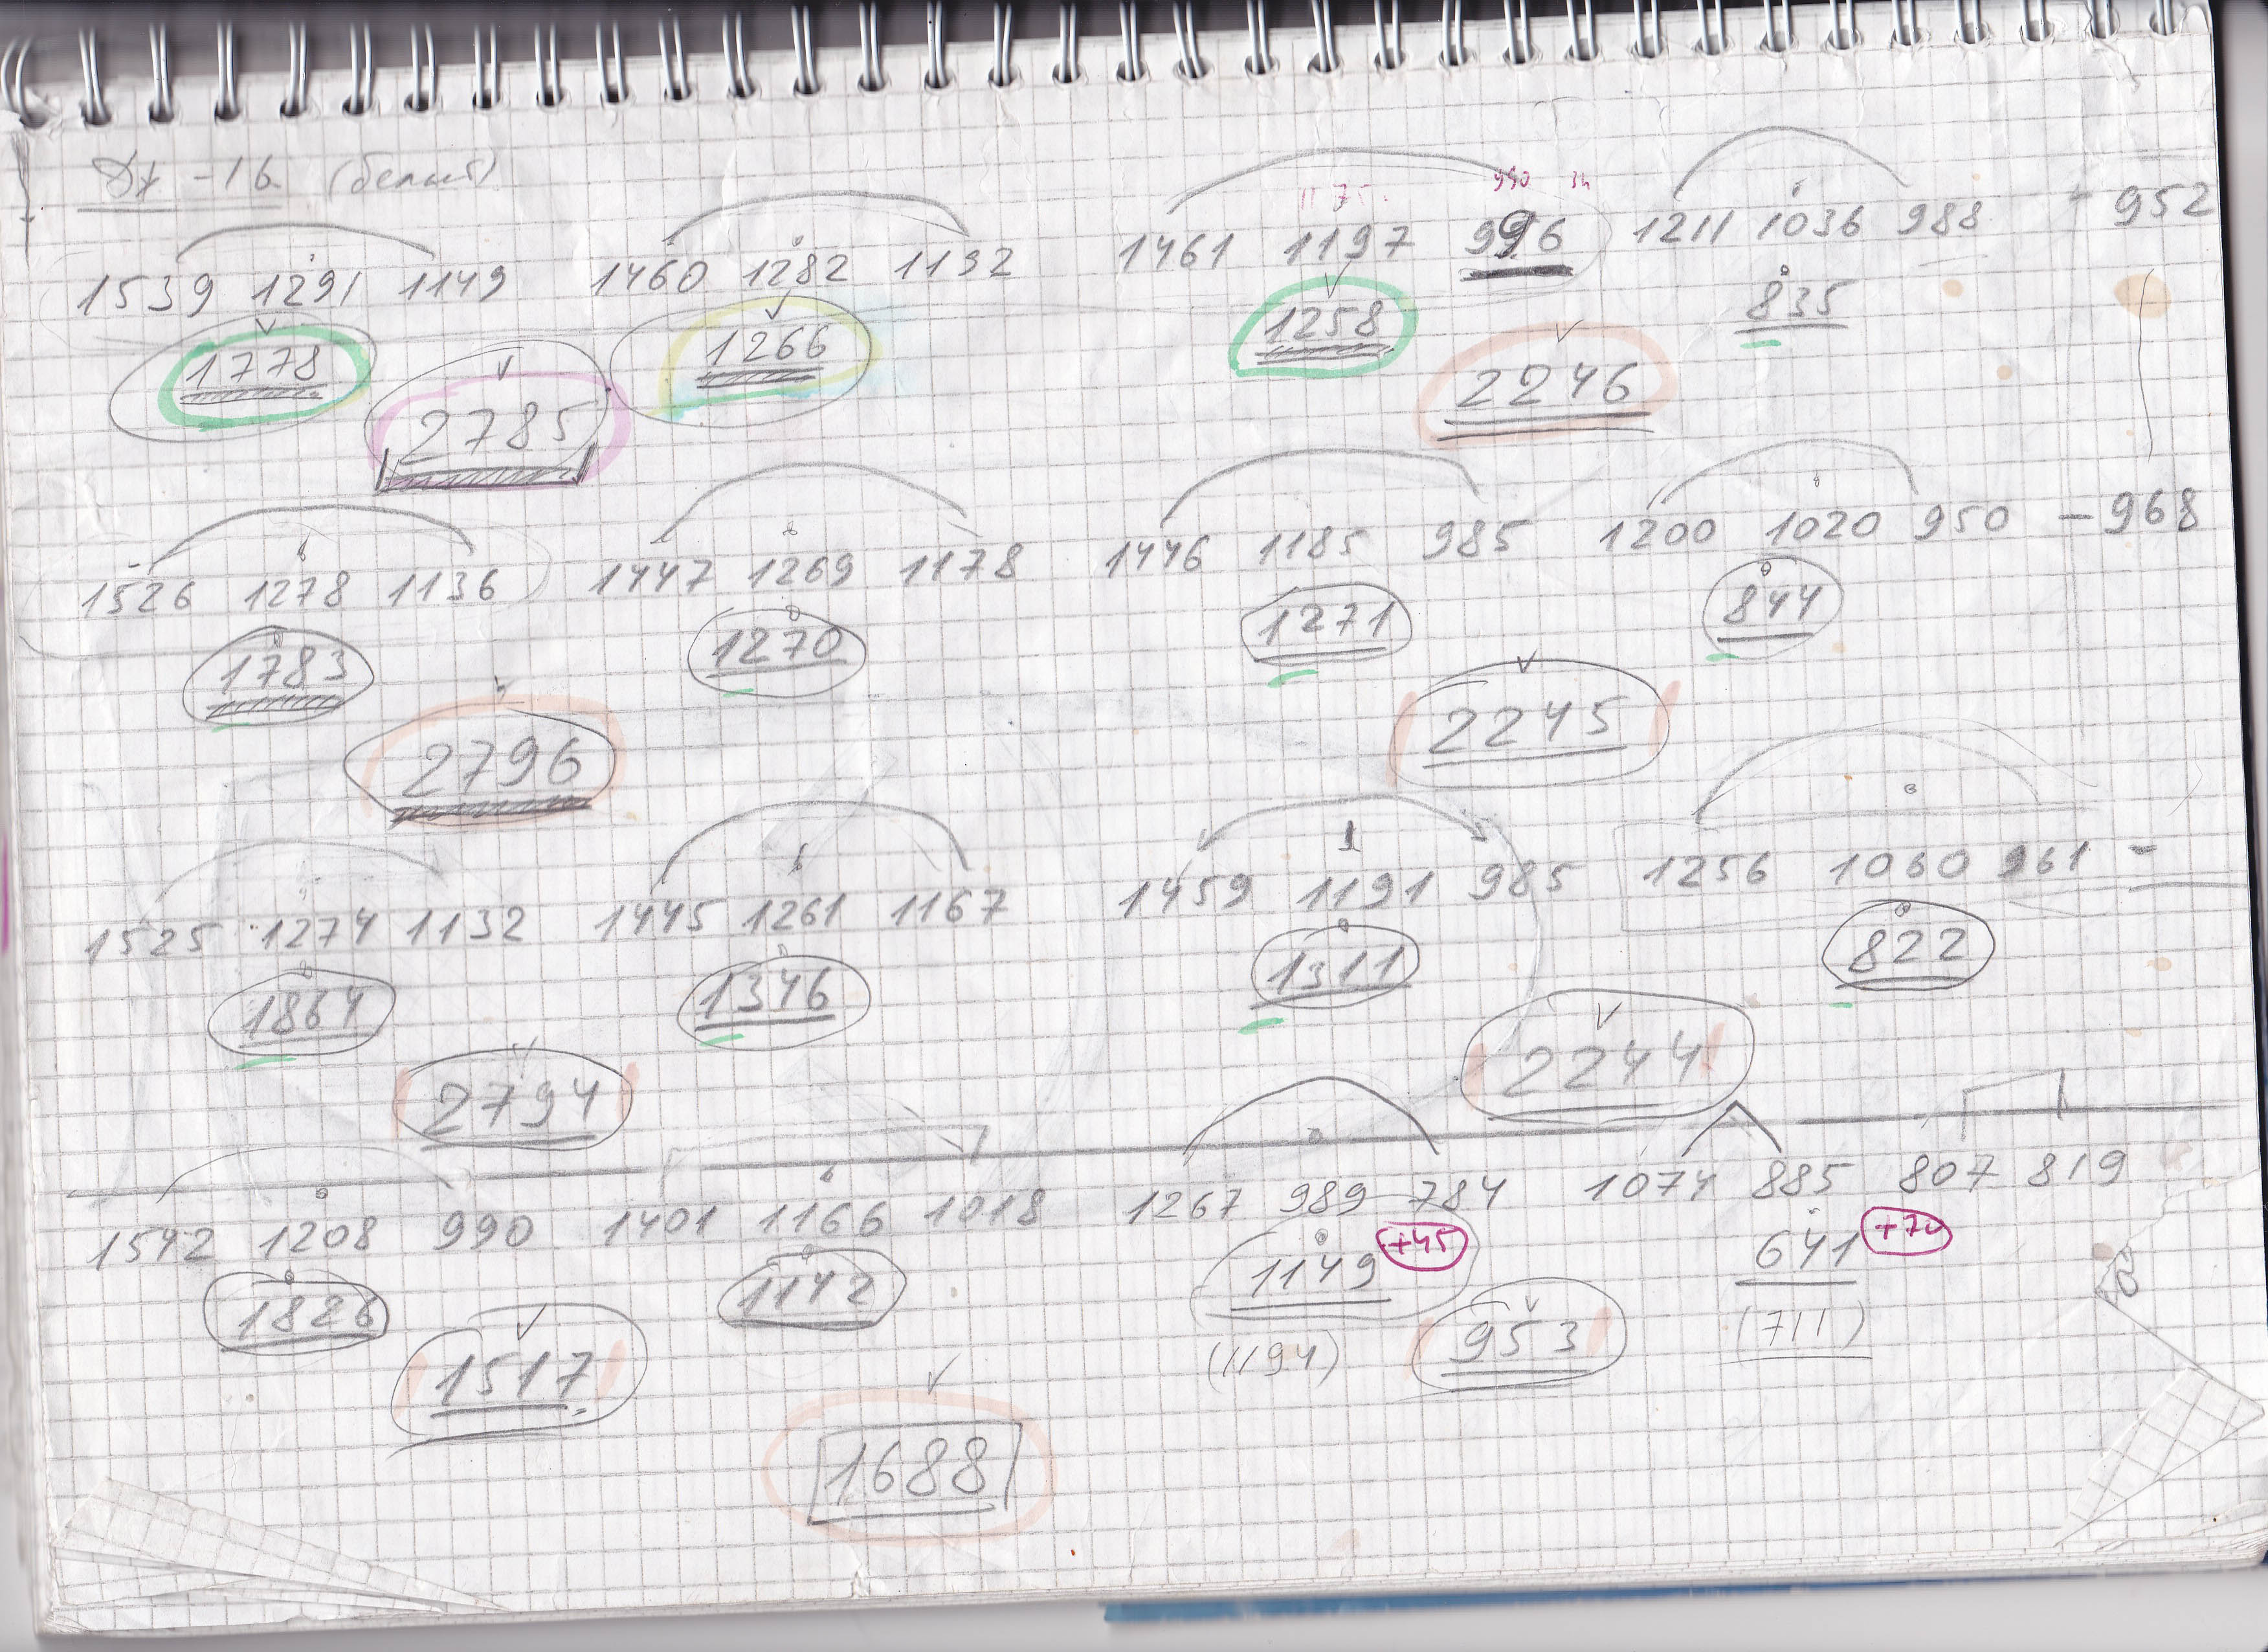 Дж -16 (белый)
1175 990
1539 1291 1149 1460 1282 1132 1461 1197 996 1211 1036 988 - 952
1778 1266 1258 835
2785 2246
1526 1278 1136 1447 1269 1178 1446 1185 985 1200 1020 950 - 968
1783 1270 1271 844
2796 2245
1525 1274 1132 1445 1261 1167 1459 1191 985 1256 1060 961 -
1864 1346 1311 822
2794 2244
1542 1208 990 1401 1166 1018 1267 989 784 1074 885 807 819
1826 1142 1149 +45 641 +70
1517 (1194) 953 (711)
1688